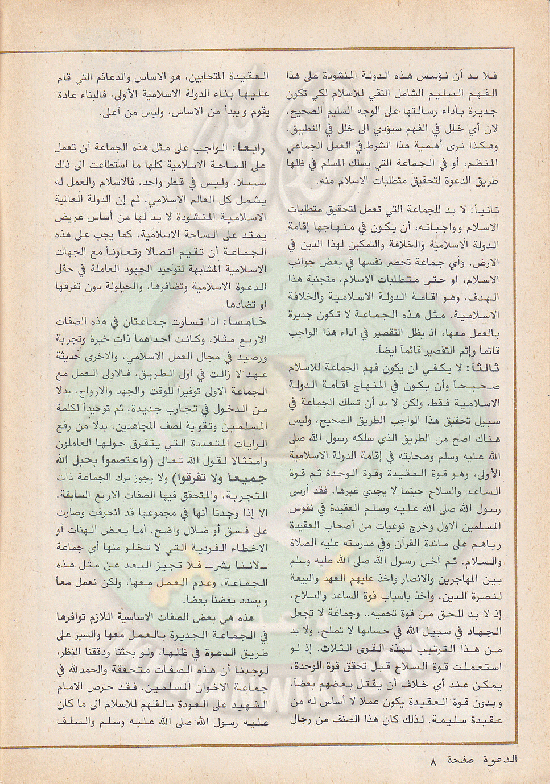 فلا بد أن نؤسس هذه الدولة المنشودة على هذا
الفهم السليم الشامل النقي للإسلام لكي تكون
جديرة بأداء رسالتها على الوجه السليم الصحيح،
لأن أي خلل في الفهم سيؤدي الى خلل في التطبيق.
وهكذا نرى أهمية هذا الشرط في العمل الجماعي
المنظم، أو في الجماعة التي يسلك المسلم في ظلها
طريق الدعوة لتحقيق متطلبات الاسلام منه.
ثانيا: لا بد للجماعة التي تعمل لتحقيق متطلبات
الاسلام وواجباته، أن يكون في منهاجها إقامة
الدولة الاسلامية والخلافة والتمكين لهذا الدين في
الأرض، وأي جماعة تحصر نفسها في بعض جوانب
الاسلام، او حتى متطلبات الاسلام، متجنبة هذا
الهدف، وهو اقامة الدولة الاسلامية والخلافة
الاسلامية، مثل هذه الجماعة لا تكون جديرة
بالعمل معها، اذ يظل التقصير في اداء هذا الواجب
قائما وإثم التقصير قائماً أيضاً.
ثالثاً: لا يكفي أن يكون فهم الجماعة للإسلام
صحيحاً وأن يكون في المنهاج اقامة الدولة
الاسلامية فقط، ولكن لا بد أن تسلك الجماعة في
سبيل تحقيق هذا الواجب الطريق الصحيح، وليس
هناك اصح من الطريق الذي سلكه رسول الله صلى
الله عليه وسلم وصحابته في إقامة الدولة الاسلامية
الأولى، وهو قوة العقيدة وقوة الوحدة ثم قوة
الساعد والسلاح حينما لا يجدي غيرها، فقد أرسى
رسول الله صلى الله عليه وسلم العقيدة في نفوس
المسلمين الاول وخرج نوعيات من أصحاب العقيدة
رباهم على مائدة القرآن وفي مدرسته عليه الصلاة
والسلام، ثم آخى رسول الله صلى الله عليه وسلم
بين المهاجرين والأنصار وأخذ عليهم العهد والبيعة
لنصرة الدين، وأخذ بأسباب قوة الساعد والسلاح،
إذ لا بد للحق من قوة تحميه.. وجماعة لا تجعل
الجهاد في سبيل الله في حسابها لا تصلح، ولا بد
من هذا الترتيب لهذه القوى الثلاث، إذ لو
استعملت قوة السلاح قبل تحقق قوة الوحدة،
يمكن عند أي خلاف أن يقتل بعضهم بعضا،
وبدون قوة العقيدة يكون عملا لا أساس له من
عقيدة سليمة. لذلك كان هذا الصنف من رجال
العقيدة المتحابين، هو الاساس والدعائم التي قام
عليها بناء الدولة الاسلامية الأولى، فالبناء عادة
يقوم ويبدأ من الاساس، وليس من أعلى.
رابعاً: الواجب على مثل هذه الجماعة أن تعمل
على الساحة الاسلامية كلها ما استطاعت الى ذلك
سبيلا، وليس في قطر واحد، فالاسلام والعمل له
يشمل كل العالم الاسلامي، ثم إن الدولة العالمية
الاسلامية المنشودة لا بد لها من أساس عريض
يمتد على الساحة الاسلامية، كما يجب على هذه
الجماعة أن تقيم اتصالا وتعاوناً مع الجهات
الاسلامية المشابهة لتوحيد الجهود العاملة في حقل
الدعوة الاسلامية وتضافرها، والحيلولة دون تفرقها
او تضادها
خامسا: اذا تساوت جماعتان في هذه الصفات
الاربع مثلا، وكانت احداهما ذات خبرة وتجربة
ورصيد في مجال العمل الاسلامي، والاخرى حديثة
عهد لا زالت في أول الطريق، فالأولى العمل مع
الجماعة الاولى توفيراً للوقت والجهد والارواح، بدلا
من الدخول في تجارب جديدة، ثم توحيداً لكلمة
المسلمين وتقوية لصف المجاهدين، بدلا من رفع
الرايات المتعددة التي يتفرق حولها العاملون
وامتثالا لقول الله تعالى (واعتصموا بحبل الله
جميعا ولا تفرقوا) ولا يجوز ترك الجماعة ذات
التجربة، والمتحقق فيها الصفات الاربع السابقة،
الا إذا وجدنا أنها في مجموعها قد انحرفت وصارت
على فسق أو ضلال واضح، أما بعض الهنات أو
الاخطاء الفردية التي لا تخلو منها أي جماعة
-لاننا بشر- فلا تجيز البعد عن مثل هذه
الجماعة، وعدم العمل معها، ولكن نعمل معا
ويسدد بعضنا بعضا.
هذه هي بعض الصفات الاساسية اللازم توافرها
في الجماعة الجديرة بالعمل معها والسير على
طريق الدعوة في ظلها، ولو بحثنا ودققنا النظر،
لوجدنا أن هذه الصفات متحققة والحمد لله في
جماعة الاخوان المسلمين، فقد حرص الامام
الشهيد على العودة بالفهم للاسلام الى ما كان
عليه رسول الله صلى الله عليه وسلم والسلف
الدعوة صفحة ٨